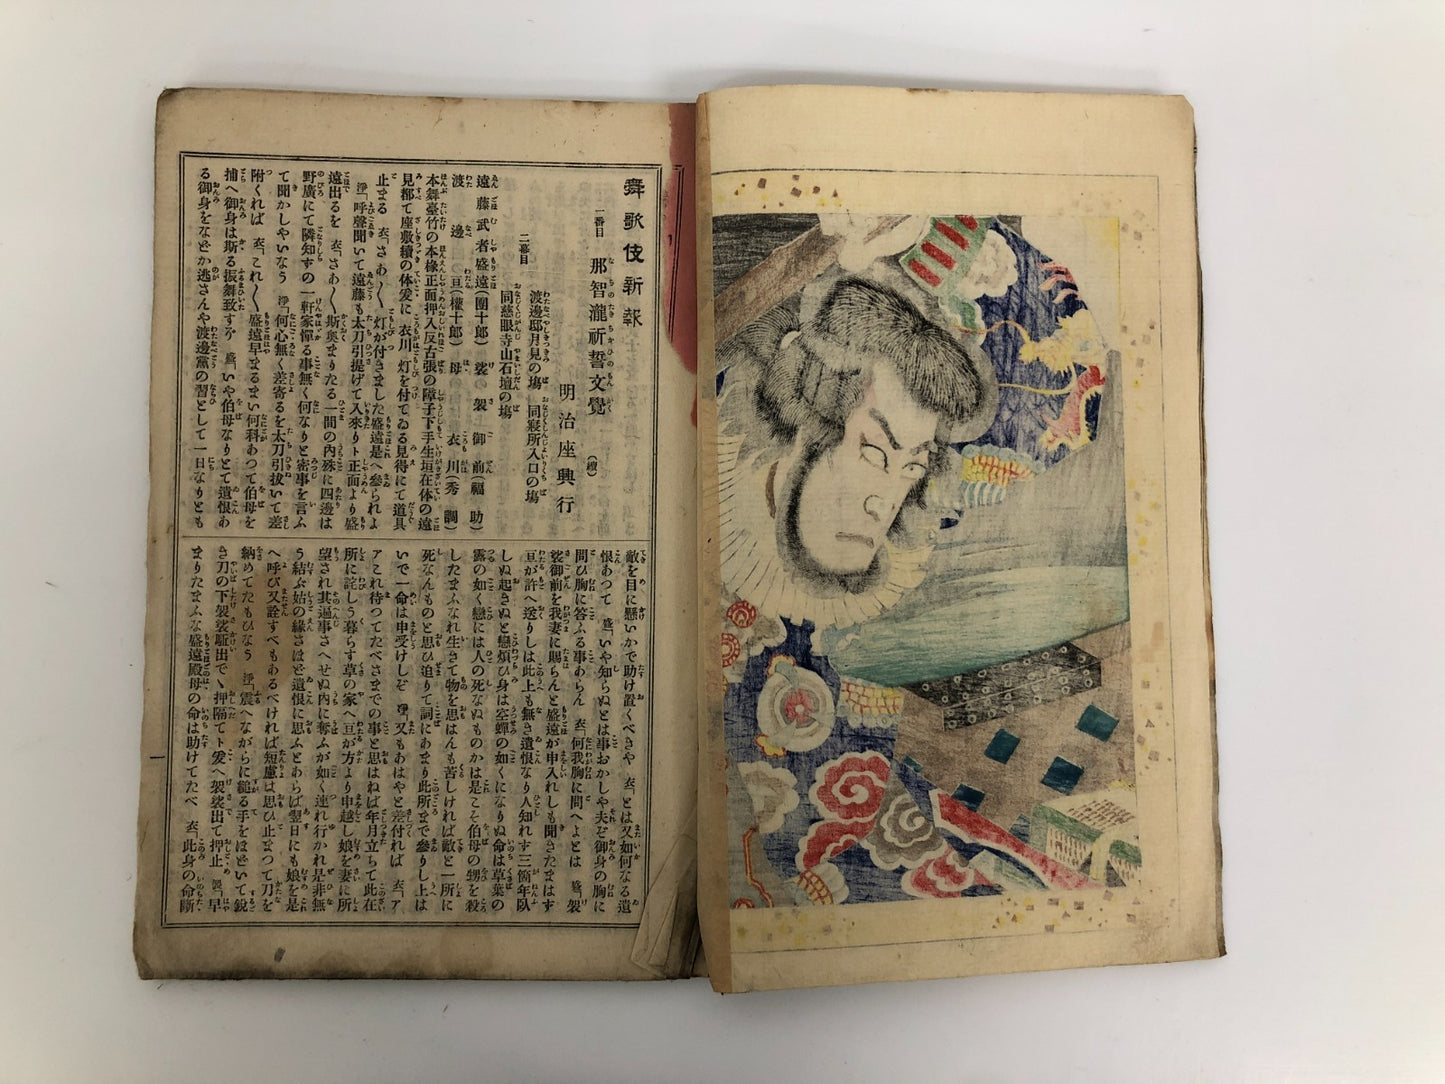 舞歌伎新報
一番目 那智瀧祈誓文覺 (續)
明治座興行
二幕目 渡邊邸月見の塲 同寢所入口の塲
同慈眼寺山石壇の塲
遠藤武者盛遠(團十郎) 袈裟御前(福助)
渡邊亘(權十郎) 母衣川(秀調)
本舞臺竹の本椽正面押入反古張の障子下手生垣在体の遠
見都て座敷續の体爰に衣川灯を付てゐる見得にて道具
止まる 衣「さあ〱灯が付きました盛遠是へ參られよ
淨「呼聲聞いて遠藤も太刀引提げて入來りト正面より盛
遠出るを 衣「さあ〱斯奥まりたる一間の内殊に四邊は
野廣にて隣知すの一軒家憚る事無く何なりと密事を言ふ
て聞かしやいなう 淨「何心無く差寄るを太刀引拔いて差
附くれば 衣「これ〱盛遠早まるまい何科あつて伯母を
捕へ御身は斯る振舞致すぞ 盛「いや伯母なりとて遺恨あ
る御身をなどか逃さんや渡邊黨の習として一日なりとも
敵を目に懸いかで助け置くべきや 衣「とは又如何なる遺
恨あつて 盛「いや知らぬとは事おかしや夫ぞ御身の胸に
問ひ胸に答ふる事あらん 衣「何我胸に問へよとは 盛「袈
裟御前を我妻に賜らんと盛遠が申入れしも聞きたまはす
亘が許へ送りしは此上も無き遺恨なり人知れす三箇年臥
しぬ起きぬと戀煩ひ身は空蟬の如くになりぬ命は草葉の
露の如く戀には人の死なぬものかは是こそ伯母の甥を殺
したまふなれ生きて物を思はんも苦しければ敵と一所に
死なんものと思ひ迫りて詞にあまり此所まで參りし上は
いで一命は申受けしぞ 淨「又もあはやと差付れば 衣「ア
アこれ待つてたべさまでの事と思はねば年月立ちて此在
所に詫しう暮らす草の家へ亘が方より申越し娘を妻に所
望され其逼事さへせぬ内に奪ふが如く連れ行かれ是非無
う結ぶ姑の緣さほど遺恨に思ふとあらば翌日にも娘を是
へ呼び又詮すべもあるべければ短慮は思ひ止まつて刀を
納めてたもひなう 淨「震へながらに縋る手をほどいて銳
き刀の下袈裟駈出で押隔てト爰へ袈裟出て押止 袈「早
まりたまふな盛遠殿母の命は助けてたべ 衣「此身の命斷
一